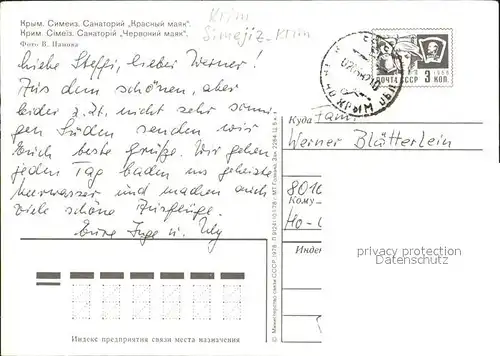 Крым. Симеиз. Санаторий „Красный маяк".
Крим. Сімеїз. Санаторій „Червоний маяк".
Фото В. Панова
Krim
Simejiz-Krim
Liebe Steffi, lieber Werner!
Aus dem schönen, aber
leider z. Zt. nicht sehr sonni-
gen Süden senden wir
Euch beste Grüße. Wir gehen
jeden Tag baden ins geheizte
Meerwasser und machen auch
viele schöne Ausflüge.
Eure Inge u.
ПОЧТА СССР 1966
3 КОП.
КРЫМ
Куда Fam.
Werner Blätterlein
8010
Кому
Индекс предприятия связи места назначения
© Министерство связи СССР, 1978
privacy protection
watermark